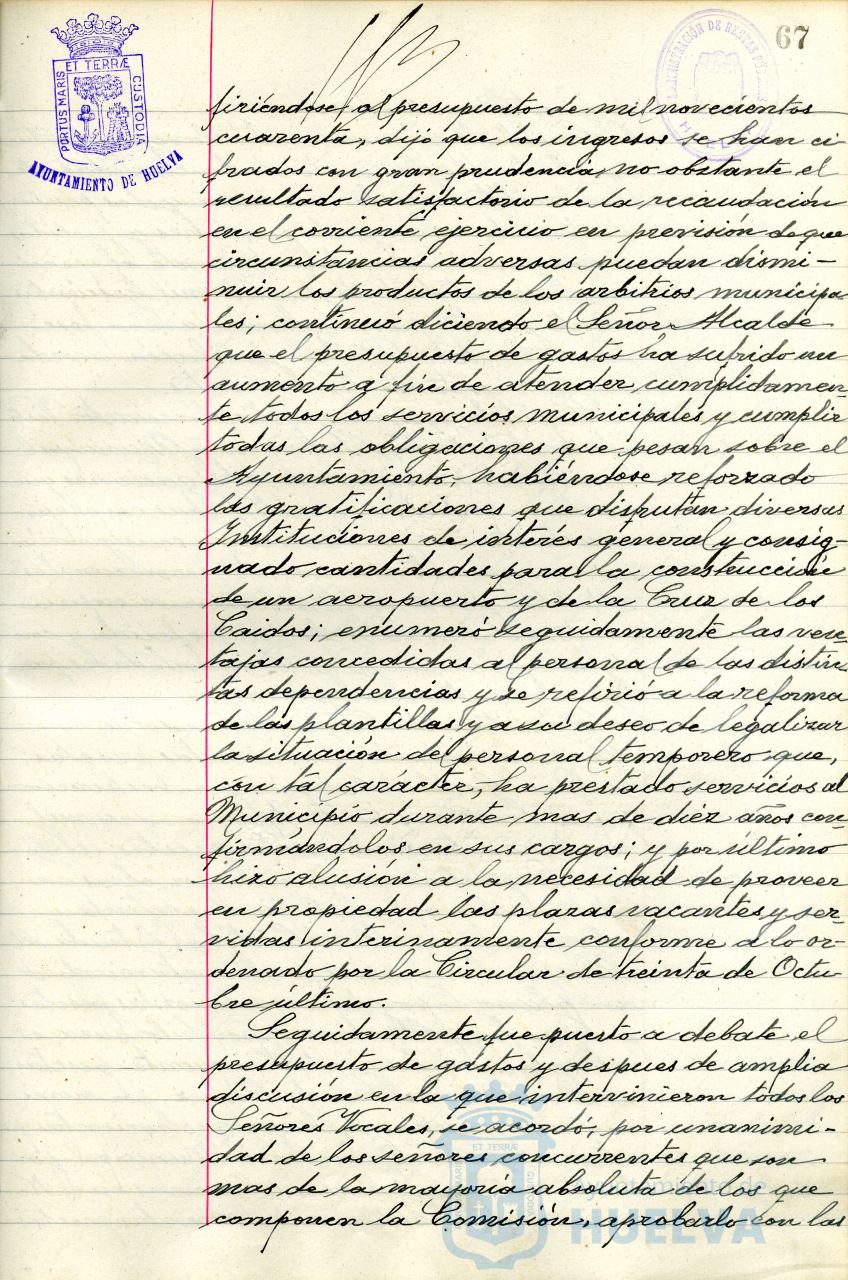 67
ET TERRÆ
PORTUS MARIS
CUSTODIA
AYUNTAMIENTO DE HUELVA
firiéndose al presupuesto de mil novecientos
cuarenta, dijo que los ingresos se han ci-
frados con gran prudencia, no obstante el
resultado satisfactorio de la recaudación
en el corriente ejercicio en previsión de que
circunstancias adversas puedan dismi-
nuir los productos de los arbitrios municipa-
les; continuó diciendo el Señor Alcalde
que el presupuesto de gastos ha sufrido un
aumento a fin de atender cumplidamen-
te todos los servicios municipales y cumplir
todas las obligaciones que pesan sobre el
Ayuntamiento, habiéndose reforzado
las gratificaciones que disfrutan diversas
Instituciones de interés general y consig-
nado cantidades para la construcción
de un aeropuerto y de la Cruz de los
Caidos; enumeró seguidamente las ven-
tajas concedidas al personal de las distin-
tas dependencias y se refirió a la reforma
de las plantillas y a su deseo de legalizar
la situación de personal temporero que,
con tal carácter, ha prestado servicios al
Municipio durante mas de diez años con-
firmándolos en sus cargos; y por último
hizo alusión a la necesidad de proveer
en propiedad las plazas vacantes y ser-
vidas interinamente conforme a lo or-
denado por la Circular de treinta de Octu-
bre último.
Seguidamente fue puesto a debate el
presupuesto de gastos y despues de amplia
discusión en la que intervinieron todos los
Señores Vocales, se acordó, por unanimi-
dad de los señores concurrentes que son
mas de la mayoría absoluta de los que
componen la Comisión, aprobarlo con las
Ayuntamiento de
HUELVA